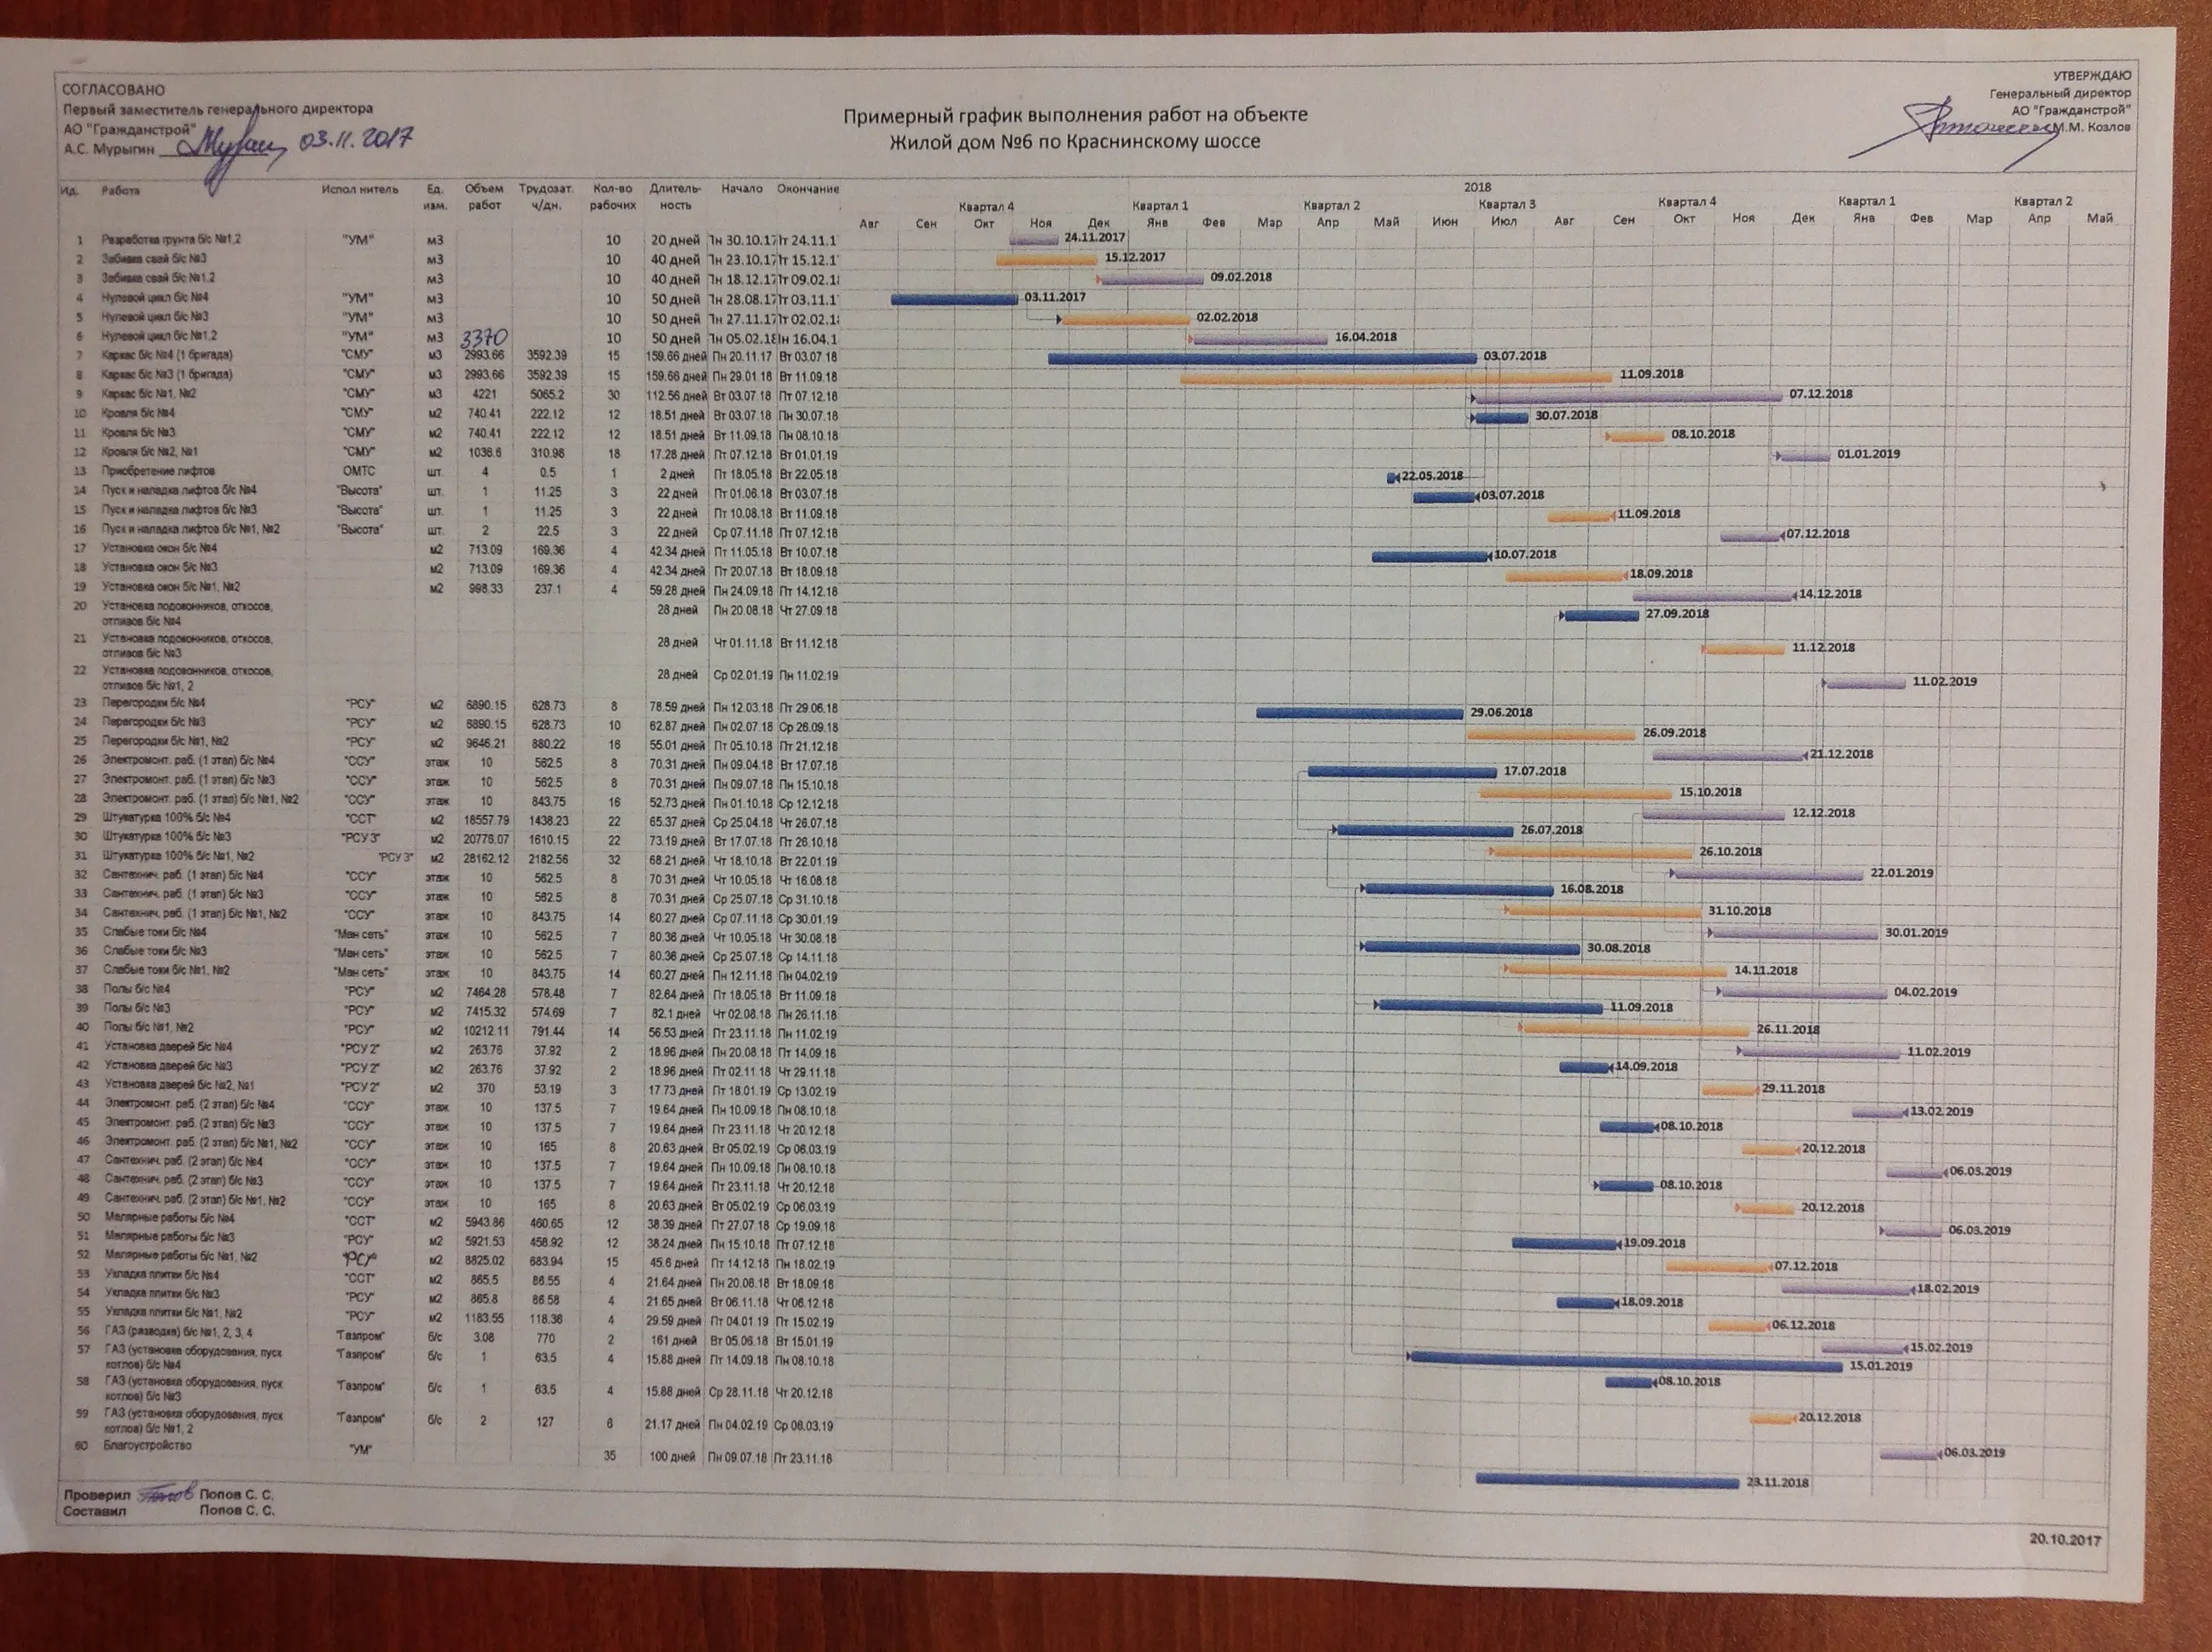 СОГЛАСОВАНО
Первый заместитель генерального директора
АО "Гражданстрой"
А.С. Мурыгин 03.11.2017
Примерный график выполнения работ на объекте
Жилой дом №6 по Краснинскому шоссе
УТВЕРЖДАЮ
Генеральный директор
АО "Гражданстрой"
М.М. Козлов
Ид. Работа Исполнитель Ед. изм. Объем работ Трудозат. ч/дн. Кол-во рабочих Длитель-ность Начало Окончание
2018
Квартал 4 Квартал 1 Квартал 2 Квартал 3 Квартал 4 Квартал 1 Квартал 2
Авг Сен Окт Ноя Дек Янв Фев Мар Апр Май Июн Июл Авг Сен Окт Ноя Дек Янв Фев Мар Апр Май
1 Разработка грунта б/с №1,2 "УМ" м3 10 20 дней Пн 30.10.17 Пт 24.11.1 24.11.2017
2 Забивка свай б/с №3 м3 10 40 дней Пн 23.10.17 Пт 15.12.1 15.12.2017
3 Забивка свай б/с №1,2 м3 10 40 дней Пн 18.12.17 Пт 09.02.1 09.02.2018
4 Нулевой цикл б/с №4 "УМ" м3 10 50 дней Пн 28.08.17 Пт 03.11.1 03.11.2017
5 Нулевой цикл б/с №3 "УМ" м3 10 50 дней Пн 27.11.17 Пт 02.02.1 02.02.2018
6 Нулевой цикл б/с №1,2 "УМ" м3 3370 10 50 дней Пн 05.02.18 Пн 16.04.1 16.04.2018
7 Каркас б/с №4 (1 бригада) "СМУ" м3 2993.66 3592.39 15 159.66 дней Пн 20.11.17 Вт 03.07.18 03.07.2018
8 Каркас б/с №3 (1 бригада) "СМУ" м3 2993.66 3592.39 15 159.66 дней Пн 29.01.18 Вт 11.09.18 11.09.2018
9 Каркас б/с №1, №2 "СМУ" м3 4221 5065.2 30 112.56 дней Вт 03.07.18 Пт 07.12.18 07.12.2018
10 Кровля б/с №4 "СМУ" м2 740.41 222.12 12 18.51 дней Вт 03.07.18 Пн 30.07.18 30.07.2018
11 Кровля б/с №3 "СМУ" м2 740.41 222.12 12 18.51 дней Вт 11.09.18 Пн 08.10.18 08.10.2018
12 Кровля б/с №2, №1 "СМУ" м2 1036.6 310.98 18 17.28 дней Пт 07.12.18 Вт 01.01.19 01.01.2019
13 Приобретение лифтов ОМТС шт. 4 0.5 1 2 дней Пт 18.05.18 Вт 22.05.18 22.05.2018
14 Пуск и наладка лифтов б/с №4 "Высота" шт. 1 11.25 3 22 дней Пт 01.06.18 Вт 03.07.18 03.07.2018
15 Пуск и наладка лифтов б/с №3 "Высота" шт. 1 11.25 3 22 дней Пт 10.08.18 Вт 11.09.18 11.09.2018
16 Пуск и наладка лифтов б/с №1, №2 "Высота" шт. 2 22.5 3 22 дней Ср 07.11.18 Пт 07.12.18 07.12.2018
17 Установка окон б/с №4 м2 713.09 169.36 4 42.34 дней Пт 11.05.18 Вт 10.07.18 10.07.2018
18 Установка окон б/с №3 м2 713.09 169.36 4 42.34 дней Пт 20.07.18 Вт 18.09.18 18.09.2018
19 Установка окон б/с №1, №2 м2 998.33 237.1 4 59.28 дней Пн 24.09.18 Пт 14.12.18 14.12.2018
20 Установка подоконников, откосов, отливов б/с №4 28 дней Пн 20.08.18 Чт 27.09.18 27.09.2018
21 Установка подоконников, откосов, отливов б/с №3 28 дней Чт 01.11.18 Вт 11.12.18 11.12.2018
22 Установка подоконников, откосов, отливов б/с №1, 2 28 дней Ср 02.01.19 Пн 11.02.19 11.02.2019
23 Перегородки б/с №4 "РСУ" м2 6890.15 628.73 8 78.59 дней Пн 12.03.18 Пт 29.06.18 29.06.2018
24 Перегородки б/с №3 "РСУ" м2 6890.15 628.73 10 62.87 дней Пн 02.07.18 Ср 26.09.18 26.09.2018
25 Перегородки б/с №1, №2 "РСУ" м2 9646.21 880.22 16 55.01 дней Пт 05.10.18 Пт 21.12.18 21.12.2018
26 Электромонт. раб. (1 этап) б/с №4 "ССУ" этаж 10 562.5 8 70.31 дней Пн 09.04.18 Вт 17.07.18 17.07.2018
27 Электромонт. раб. (1 этап) б/с №3 "ССУ" этаж 10 562.5 8 70.31 дней Пн 09.07.18 Пн 15.10.18 15.10.2018
28 Электромонт. раб. (1 этап) б/с №1, №2 "ССУ" этаж 10 843.75 16 52.73 дней Пн 01.10.18 Ср 12.12.18 12.12.2018
29 Штукатурка 100% б/с №4 "ССТ" м2 18557.79 1438.23 22 65.37 дней Ср 25.04.18 Чт 26.07.18 26.07.2018
30 Штукатурка 100% б/с №3 "РСУ 3" м2 20776.07 1610.15 22 73.19 дней Вт 17.07.18 Пт 26.10.18 26.10.2018
31 Штукатурка 100% б/с №1, №2 "РСУ 3" м2 28162.12 2182.56 32 68.21 дней Чт 18.10.18 Вт 22.01.19 22.01.2019
32 Сантехнич. раб. (1 этап) б/с №4 "ССУ" этаж 10 562.5 8 70.31 дней Чт 10.05.18 Чт 16.08.18 16.08.2018
33 Сантехнич. раб. (1 этап) б/с №3 "ССУ" этаж 10 562.5 8 70.31 дней Ср 25.07.18 Ср 31.10.18 31.10.2018
34 Сантехнич. раб. (1 этап) б/с №1, №2 "ССУ" этаж 10 843.75 14 60.27 дней Ср 07.11.18 Ср 30.01.19 30.01.2019
35 Слабые токи б/с №4 "Ман сеть" этаж 10 562.5 7 80.36 дней Чт 10.05.18 Чт 30.08.18 30.08.2018
36 Слабые токи б/с №3 "Ман сеть" этаж 10 562.5 7 80.36 дней Ср 25.07.18 Ср 14.11.18 14.11.2018
37 Слабые токи б/с №1, №2 "Ман сеть" этаж 10 843.75 14 60.27 дней Пн 12.11.18 Пн 04.02.19 04.02.2019
38 Полы б/с №4 "РСУ" м2 7464.28 578.48 7 82.64 дней Пт 18.05.18 Вт 11.09.18 11.09.2018
39 Полы б/с №3 "РСУ" м2 7415.32 574.69 7 82.1 дней Чт 02.08.18 Пн 26.11.18 26.11.2018
40 Полы б/с №1, №2 "РСУ" м2 10212.11 791.44 14 56.53 дней Пт 23.11.18 Пн 11.02.19 11.02.2019
41 Установка дверей б/с №4 "РСУ 2" м2 263.76 37.92 2 18.96 дней Пн 20.08.18 Пт 14.09.18 14.09.2018
42 Установка дверей б/с №3 "РСУ 2" м2 263.76 37.92 2 18.96 дней Пт 02.11.18 Чт 29.11.18 29.11.2018
43 Установка дверей б/с №2, №1 "РСУ 2" м2 370 53.19 3 17.73 дней Пт 18.01.19 Ср 13.02.19 13.02.2019
44 Электромонт. раб. (2 этап) б/с №4 "ССУ" этаж 10 137.5 7 19.64 дней Пн 10.09.18 Пн 08.10.18 08.10.2018
45 Электромонт. раб. (2 этап) б/с №3 "ССУ" этаж 10 137.5 7 19.64 дней Пт 23.11.18 Чт 20.12.18 20.12.2018
46 Электромонт. раб. (2 этап) б/с №1, №2 "ССУ" этаж 10 165 8 20.63 дней Вт 05.02.19 Ср 06.03.19 06.03.2019
47 Сантехнич. раб. (2 этап) б/с №4 "ССУ" этаж 10 137.5 7 19.64 дней Пн 10.09.18 Пн 08.10.18 08.10.2018
48 Сантехнич. раб. (2 этап) б/с №3 "ССУ" этаж 10 137.5 7 19.64 дней Пт 23.11.18 Чт 20.12.18 20.12.2018
49 Сантехнич. раб. (2 этап) б/с №1, №2 "ССУ" этаж 10 165 8 20.63 дней Вт 05.02.19 Ср 06.03.19 06.03.2019
50 Малярные работы б/с №4 "ССТ" м2 5943.86 460.65 12 38.39 дней Пт 27.07.18 Ср 19.09.18 19.09.2018
51 Малярные работы б/с №3 "РСУ" м2 5921.53 458.92 12 38.24 дней Пн 15.10.18 Пт 07.12.18 07.12.2018
52 Малярные работы б/с №1, №2 "РСУ" м2 8825.02 683.94 15 45.6 дней Пт 14.12.18 Пн 18.02.19 18.02.2019
53 Укладка плитки б/с №4 "ССТ" м2 865.5 86.55 4 21.64 дней Пн 20.08.18 Вт 18.09.18 18.09.2018
54 Укладка плитки б/с №3 "РСУ" м2 865.8 86.58 4 21.65 дней Вт 06.11.18 Чт 06.12.18 06.12.2018
55 Укладка плитки б/с №1, №2 "РСУ" м2 1183.55 118.36 4 29.59 дней Пт 04.01.19 Пт 15.02.19 15.02.2019
56 ГАЗ (разводка) б/с №1, 2, 3, 4 "Газпром" б/с 3.08 770 2 161 дней Вт 05.06.18 Вт 15.01.19 15.01.2019
57 ГАЗ (установка оборудования, пуск котлов) б/с №4 "Газпром" б/с 1 63.5 4 15.88 дней Пт 14.09.18 Пн 08.10.18 08.10.2018
58 ГАЗ (установка оборудования, пуск котлов) б/с №3 "Газпром" б/с 1 63.5 4 15.88 дней Ср 28.11.18 Чт 20.12.18 20.12.2018
59 ГАЗ (установка оборудования, пуск котлов) б/с №1, 2 "Газпром" б/с 2 127 6 21.17 дней Пн 04.02.19 Ср 06.03.19 06.03.2019
60 Благоустройство "УМ" 35 100 дней Пн 09.07.18 Пт 23.11.18 23.11.2018
Проверил Попов С. С.
Составил Попов С. С.
20.10.2017